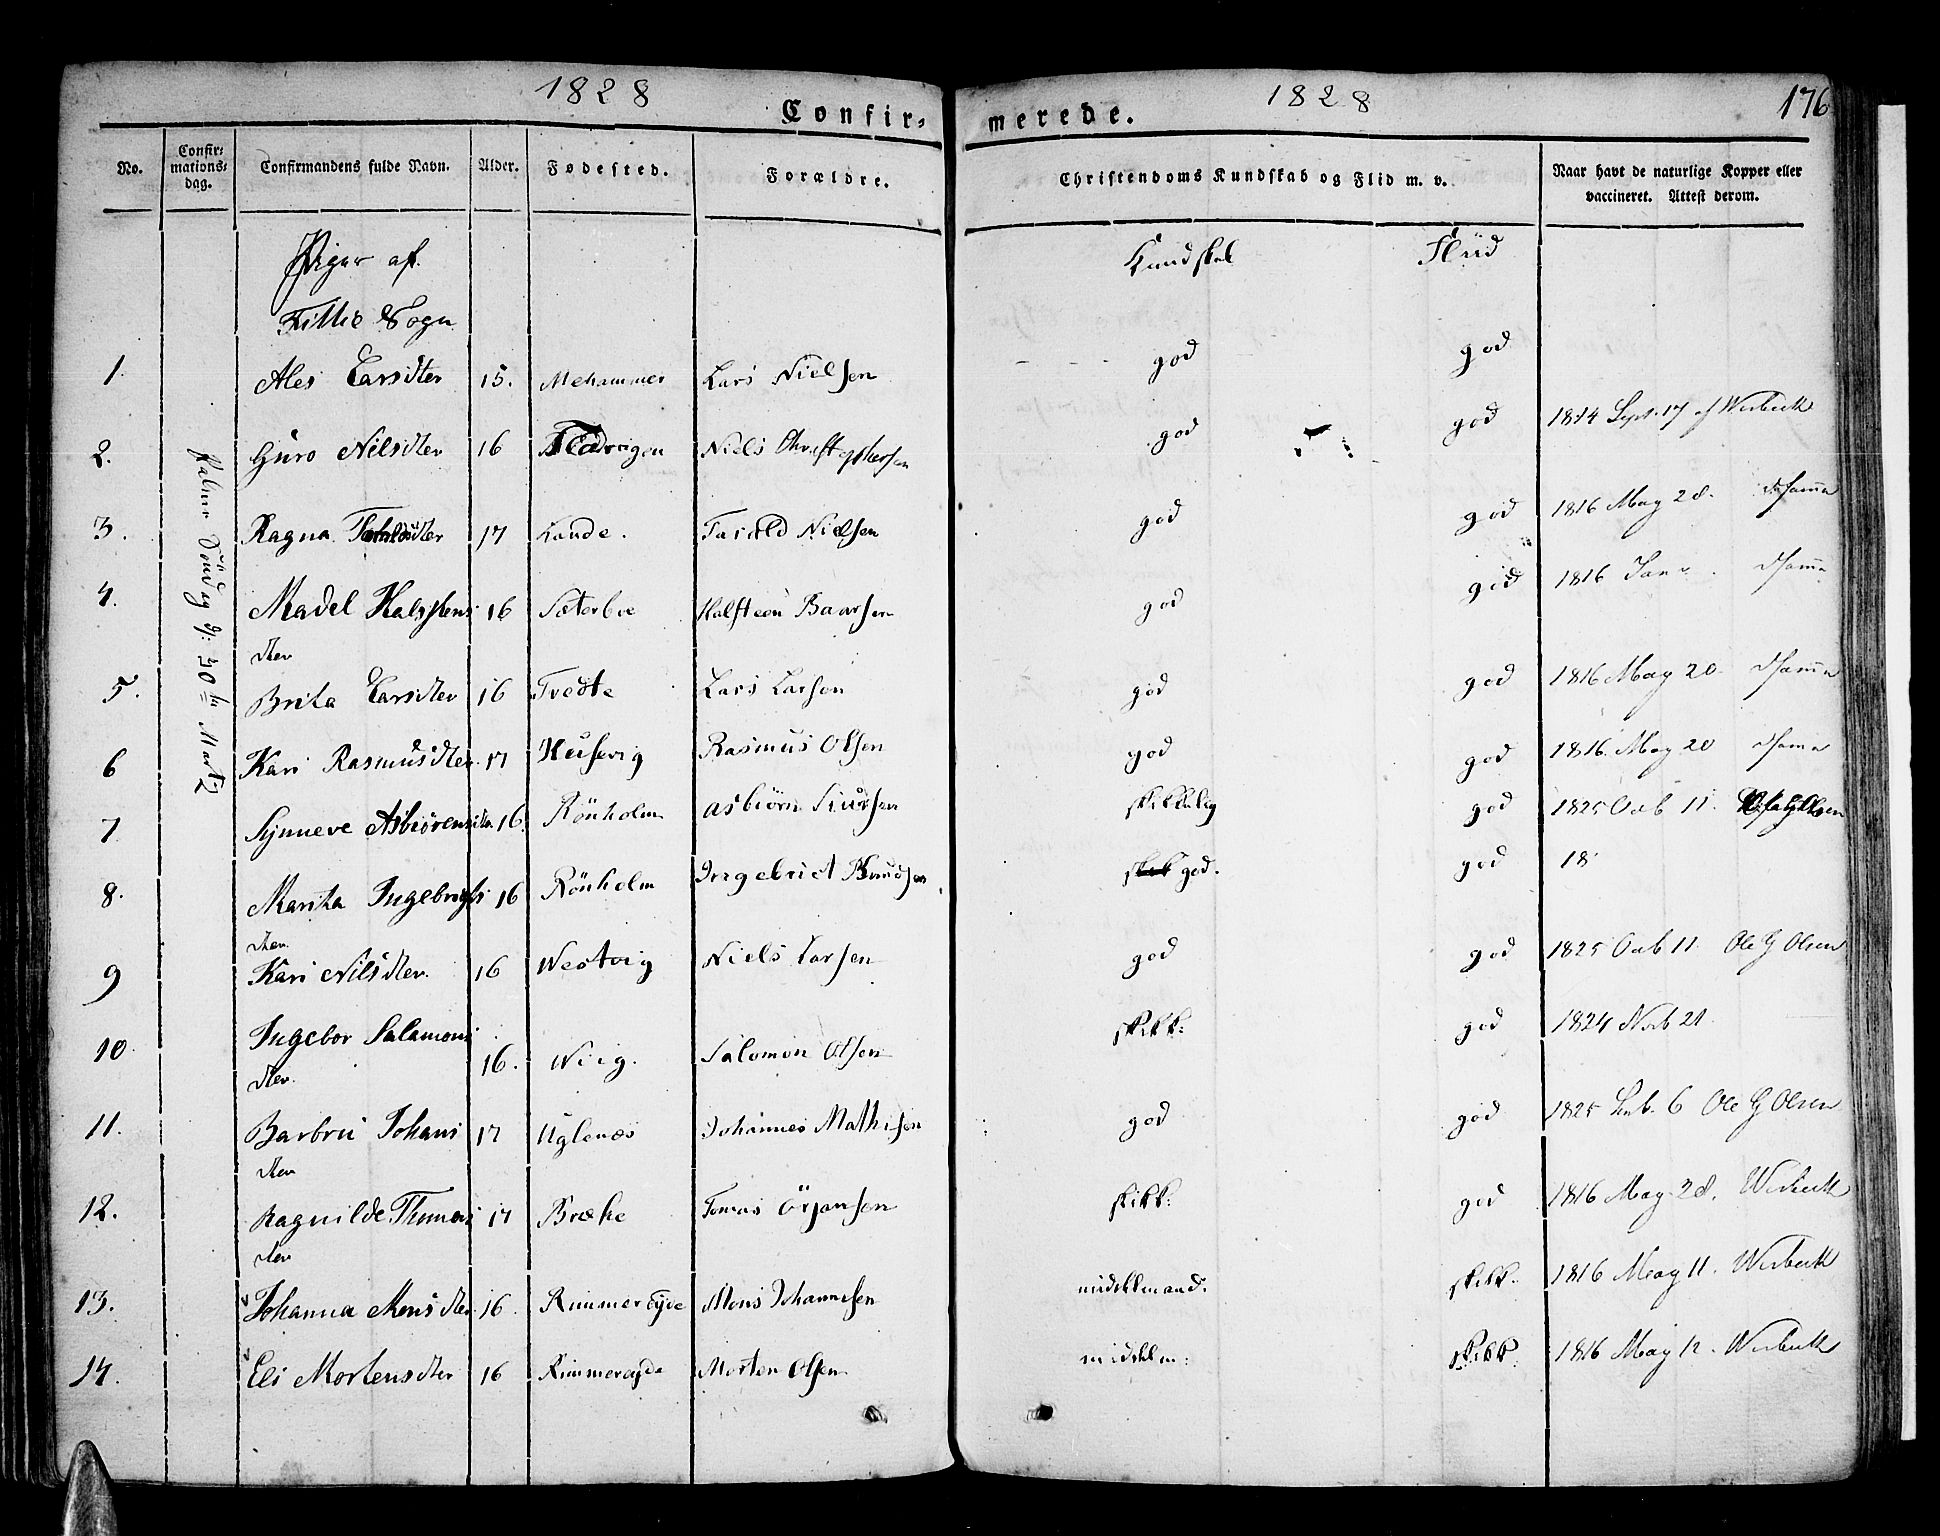 1828
1828
176
Confir-
merede.
No.
Confir-
mations-
dag.
Confirmandens fulde Navn.
Alder.
Fødested.
Forældre.
Christendoms Kundskab og Flid m. v.
Naar havt de naturlige Kopper eller
vaccineret. Attest derom.
Piger af
Kundskab Fliid
Sogn
Palme Söndag d: 30 Martz
1. Ales Larsdtter 15. Mehammer Lars Nielsen god god
2. Guro Nilsdtter 16 Niels Christophersen god god 1814 Sept. 17 af Wesbeck
3. Ragna 17 Lande. Nielsen god god 1816 May 28. dsamme
4. Madel Halstens 16 Sæterbøe Halsteen Baarsen god god 1816 Janr. dsamme
dtter
5. Brita Larsdtter 16 Tvedte Lars Larsen god god 1816 May 20 dsamme
6 Kari Rasmusdtter 17 Husevig Rasmus Olsen god god 1816. May 20 dsamme
7 Synneve Asbiörens dtr 16. Rönholm Asbiörn Siursen skikkelig god 1825 Octb 11.
8. Marita Ingebrigts 16 Rönholm Ingebrict Knudsen god. god 18
dtter.
9 Kari Nilsdtter. 16 Westvig Niels Larsen god god 1825 Octb 11. Ole G Olsen
10 Ingebor Salamons 16. Wiig. Salomon Olsen skikk: god 1824 Novb 21
dtter.
11. Barbru Johans 17 Uglenæs Johannes Mathisen god god 1825 6 Ole G Olsen
dtter
12. Ragnilde Thomas 17 Bræke Tomas Örjansen skikk: god 1816 May 28. Wesbeck
dtter
13. Johanna Monsdtter 16. Rimmereyde Mons Johannesen midelmaad: skikk: 1816 May 11. Wesbeck
14. Eli Mortensdtter 16 Rimmereyde Morten Olsen midelm: skikk: 1816 May 12. Wesbeck